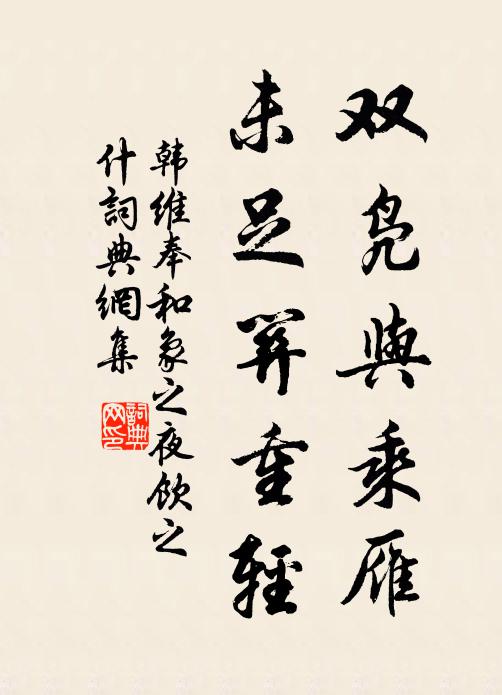 双凫與乘雁
未足算重輕
韩维奉和象之夜饮之
什詞典網集
詞典网印